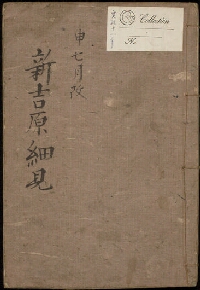 申七月改
新吉原細見
Collection